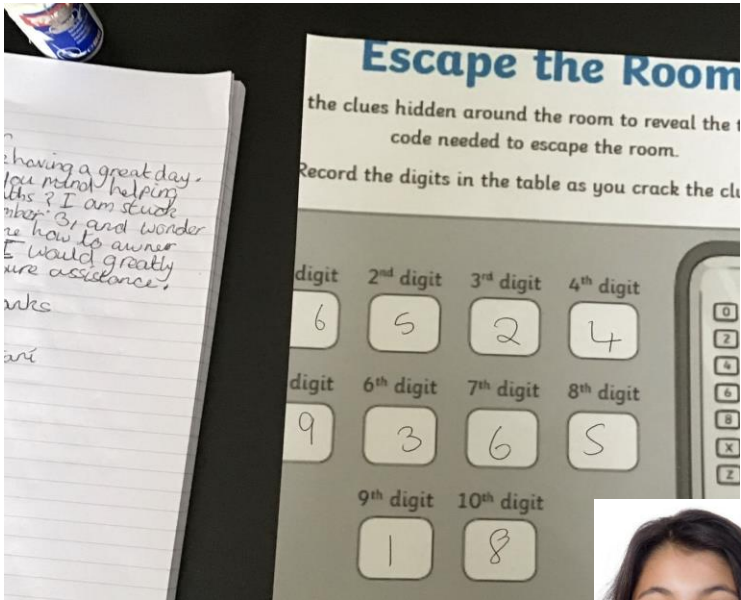 having a great day.
you mind helping
ths? I am stuck
mber 3, and wonder
me how to awner
I would greatly
ure assistance.
anks
ani
Escape the Room
the clues hidden around the room to reveal the t
code needed to escape the room.
Record the digits in the table as you crack the clu
digit 2nd digit 3rd digit 4th digit
6 5 2 4
digit 6th digit 7th digit 8th digit
9 3 6 5
9th digit 10th digit
1 8
0
2
4
6
8
X
Z